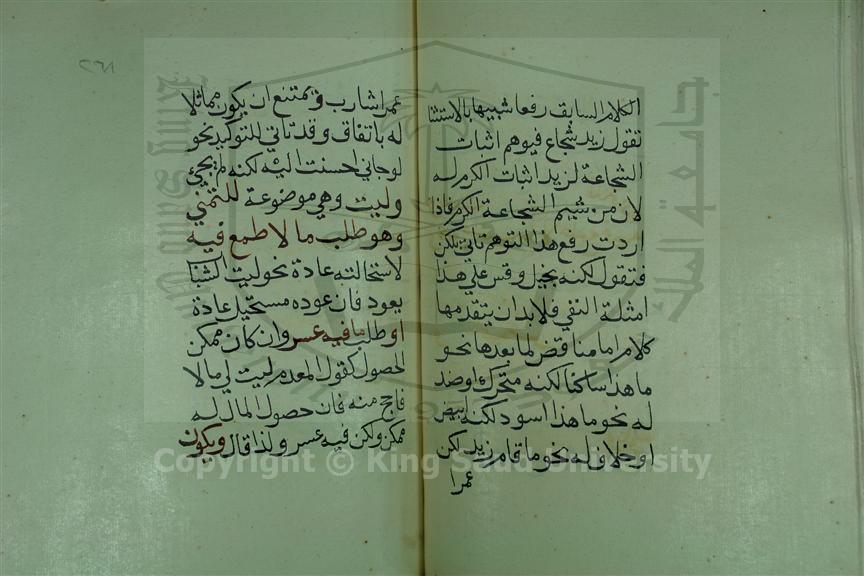 الكلام السابق رفعا شبيها بالاستثنا
تقول زيد شجاع فيوهم اثبات
الشجاعة لزيد اثبات الكرم له
لان من شيم الشجاعة الكرم فاذا
اردت رفع هذا التوهم تاتي بلكن
فتقول لكنه بخيل وقس على هذا
امثلة النفي فلا بد ان يتقدمها
كلام اما مناقض لما بعدها نحو
ما هذا ساكنا لكنه متحرك او ضد
له نحو ما هذا اسود لكنه ابيض
او خلاف له نحو ما قام زيد لكن
عمرا
عمرا شارب ويمتنع ان يكون مماثلا
له باتفاق وقد تاتي للتوكيد نحو
لو جاني احسنت اليه لكنه لم يجئ
وليت وهي موضوعة للتمني
وهو طلب ما لا طمع فيه
لاستحالته عادة نحو ليت الشباب
يعود فان عوده مستحيل عادة
او طلب ما فيه عسر وان كان ممكن
الحصول كقول المعدم ليت لي مالا
فاحج منه فان حصول المال له
ممكن ولكن فيه عسر ولذا قال ويكون
٢٦٨
جامعة الملك سعود
Copyright © King Saud University